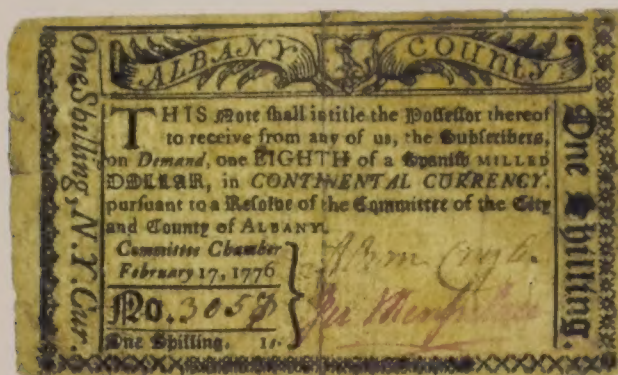 ALBANY County
One Shilling, N.Y. Cur.
THIS Note shall intitle the Possessor thereof
to receive from any of us, the Subscribers,
on Demand, one EIGHTH of a Spanish MILLED
DOLLAR, in CONTINENTAL CURRENCY.
pursuant to a Resolve of the Committee of the City
and County of ALBANY.
Committee Chamber
February 17, 1776
No. 3057
One Shilling. 1s.
One Shilling.